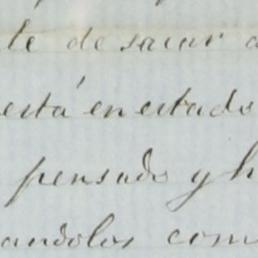 te de sacar a
está en estado
pensado y h
andolos com